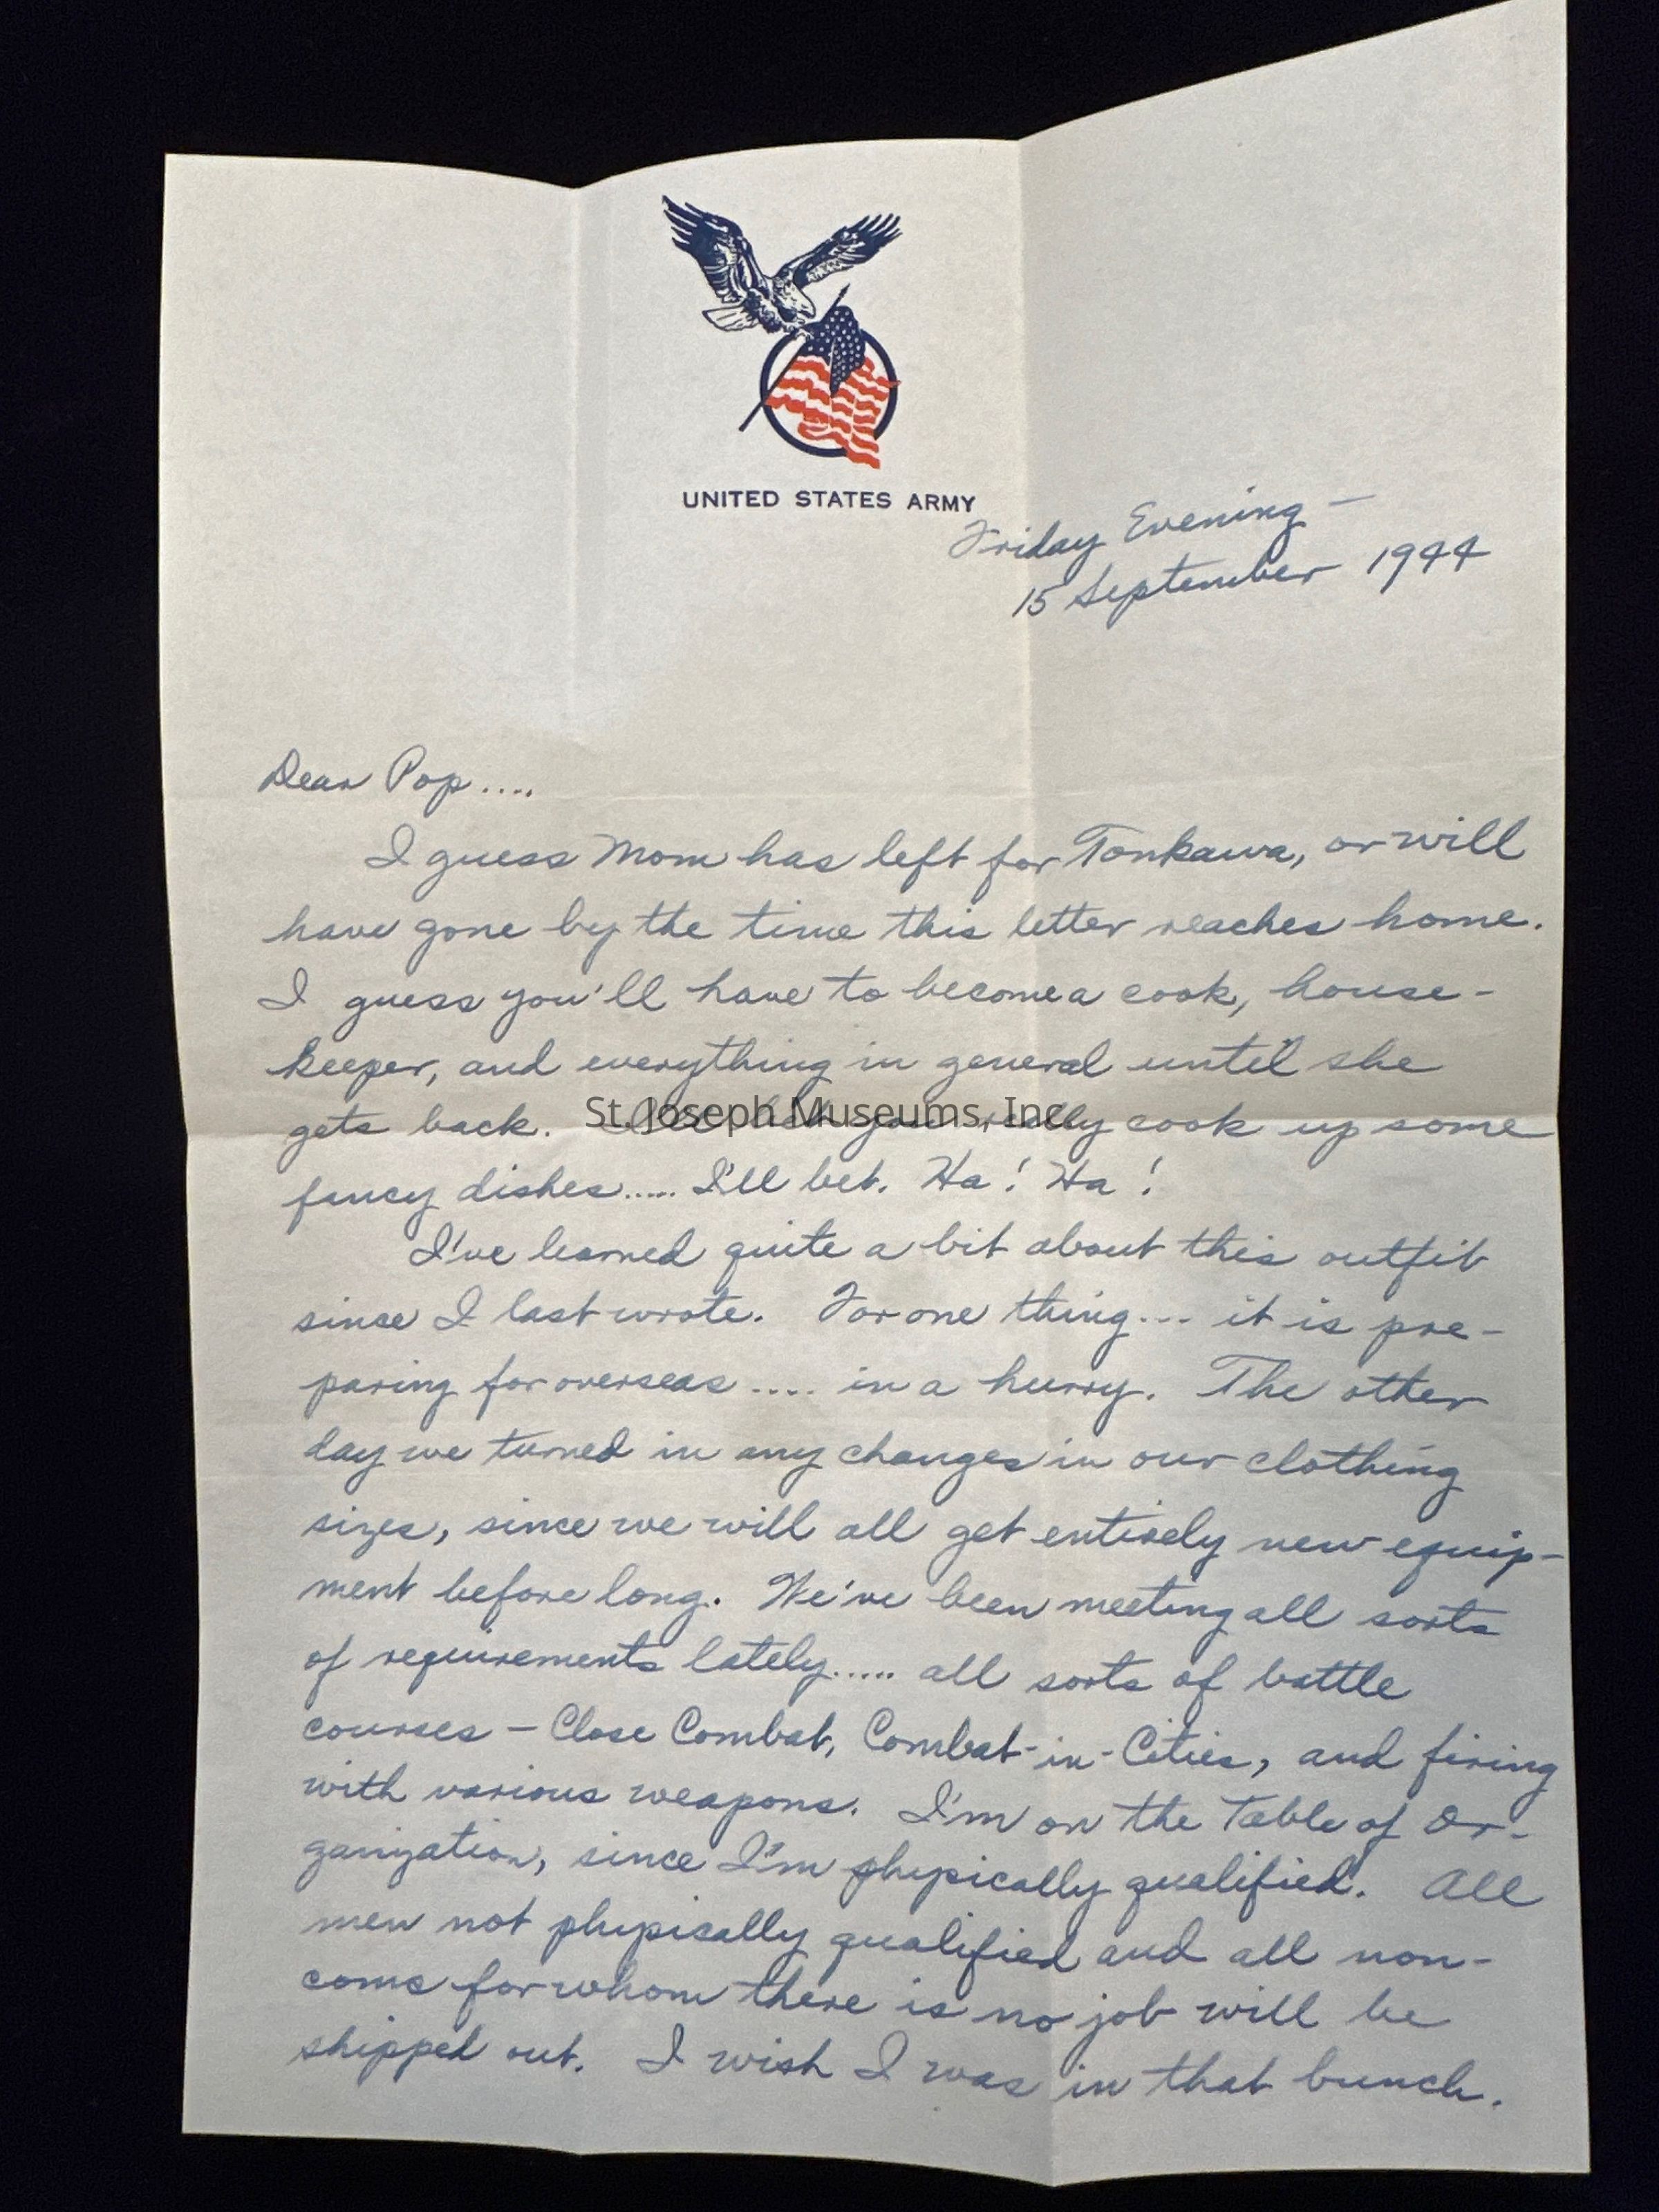 UNITED STATES ARMY
Friday Evening –
15 September 1944
Dear Pop....
I guess Mom has left for Tonkawa, or will
have gone by the time this letter reaches home.
I guess you'll have to become a cook, house-
keeper, and everything in general until she
gets back. cook up some
St. Joseph Museums, Inc.
fancy dishes..... I'll bet. Ha! Ha!
I've learned quite a bit about this outfit
since I last wrote. For one thing... it is pre-
paring for overseas.... in a hurry. The other
day we turned in any changes in our clothing
sizes, since we will all get entirely new equip-
ment before long. We've been meeting all sorts
of requirements lately..... all sorts of battle
courses – Close Combat, Combat-in-Cities, and firing
with various weapons. I'm on the Table of Or-
ganization, since I'm phypically qualified. All
men not phypically qualified and all non-
coms for whom there is no job will be
shipped out. I wish I was in that bunch.